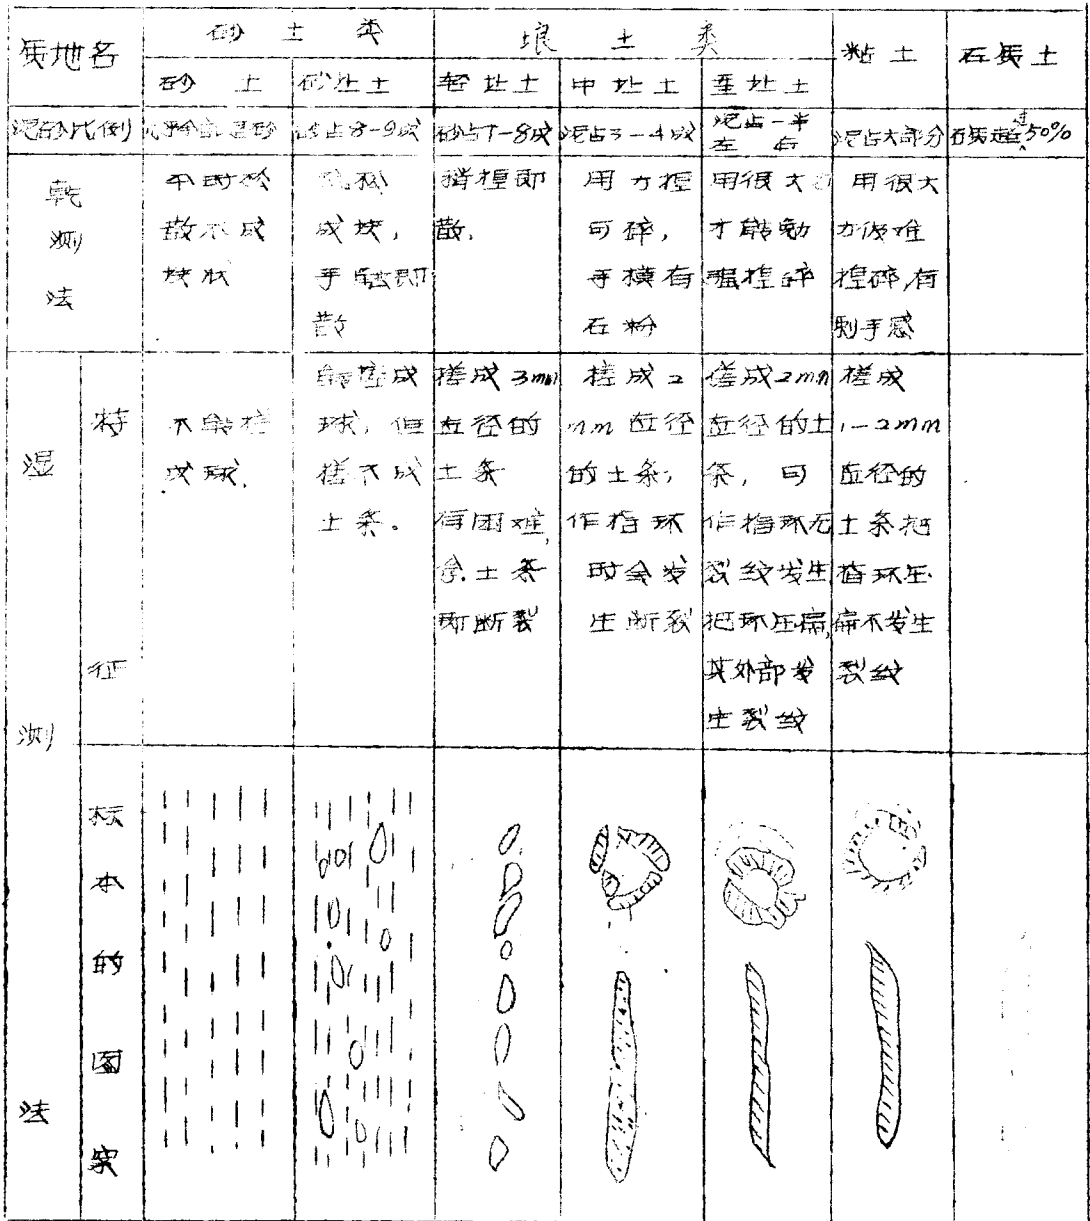 质地名 砂土类 埌土类 粘土 石质土
砂土 砂址土 轻址土 中址土 重址土
泥砂比例 几乎全部是砂 砂占8-9成 砂占7-8成 泥占3-4成 泥占一半左右 泥占大部分 石质超过50%
乾测法
平时松
散不成
块状
成块,
手触即
散
稍捏即
散.
用力捏
可碎,
手摸有
石粉
用很大
才能勉
强捏碎
用很大
力仅难
捏碎,有
刺手感
湿测法
特征
不能搓
成球.
能搓成
球,但
搓不成
土条。
搓成3mm
直径的
土条
有困难,
拿土条
即断裂
搓成2
mm直径
的土条,
作指环
时会发
生断裂
搓成2mm
直径的土
条,可
作指环无
裂纹发生
把环压扁,
其外部发
生裂纹
搓成
1-2mm
直径的
土条把
指环压
扁不发生
裂纹
标本的图案